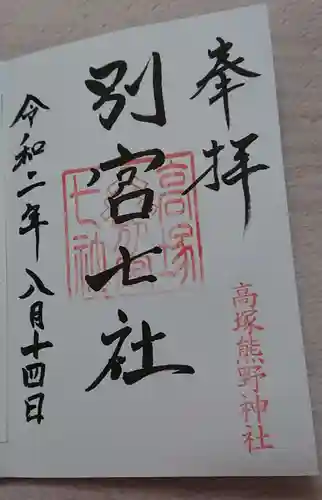 奉拝
高塚熊野神社
別宮七社
令和二年八月十四日